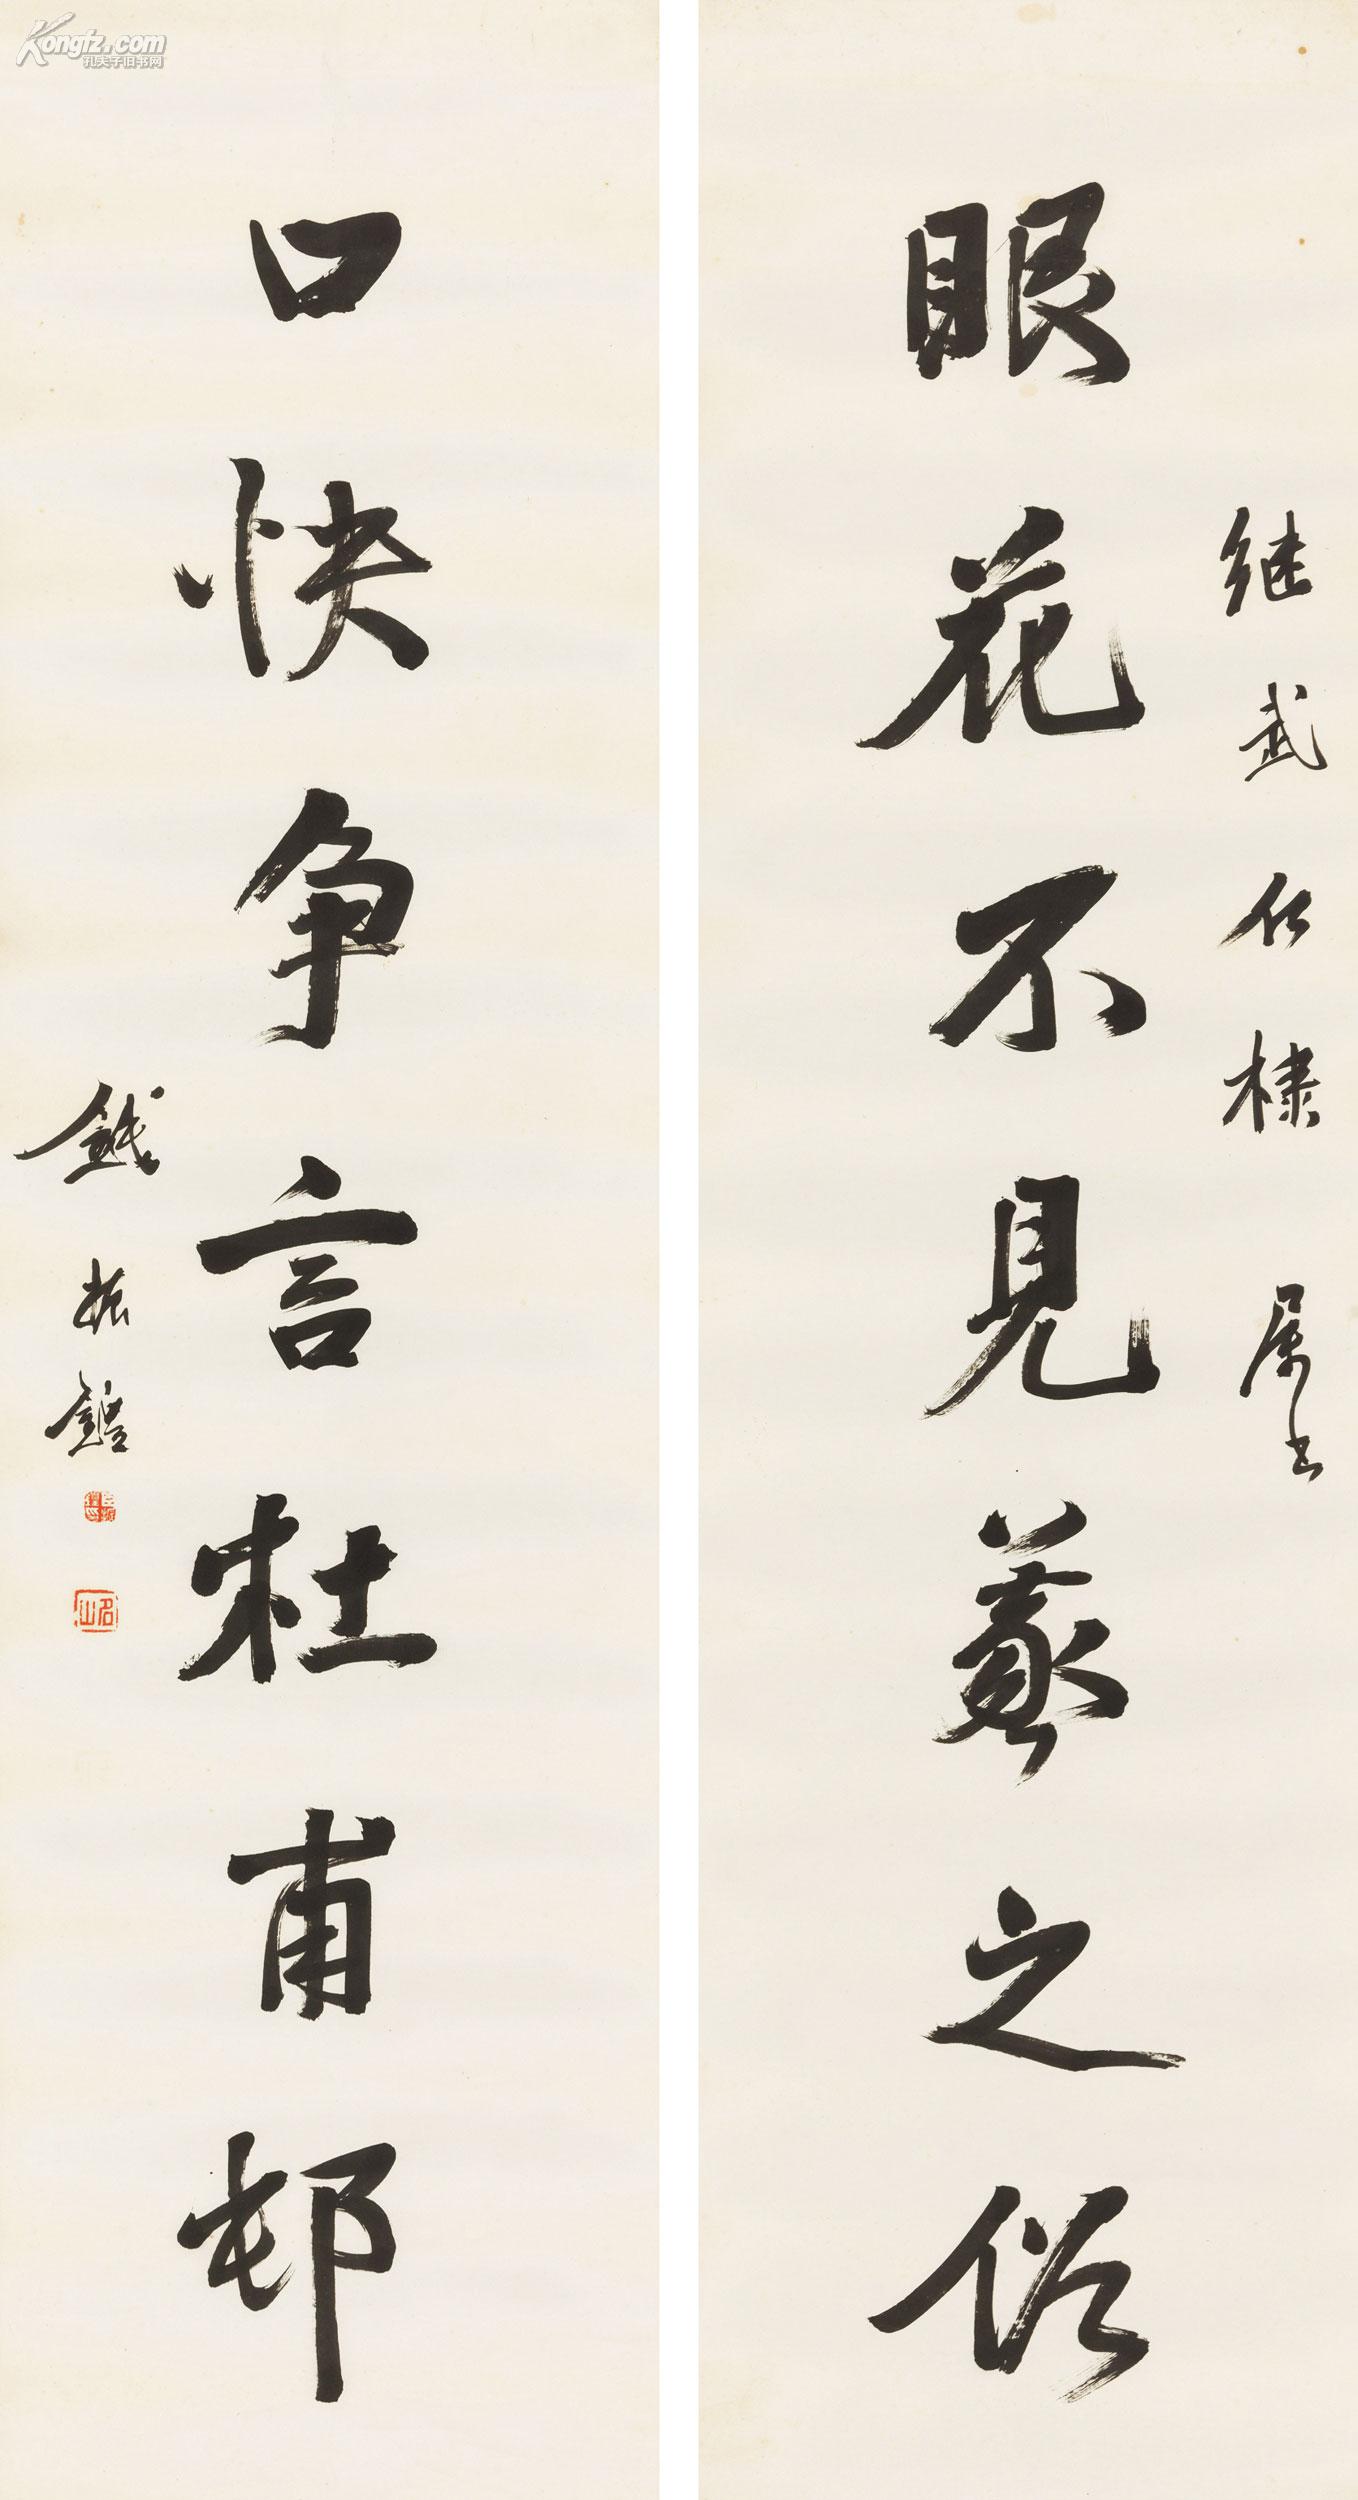 Kongfz.com
孔夫子旧书网
继武仁棣 属书
眼花不見羲之俗
口快争言杜甫邨
錢振鍠
名山